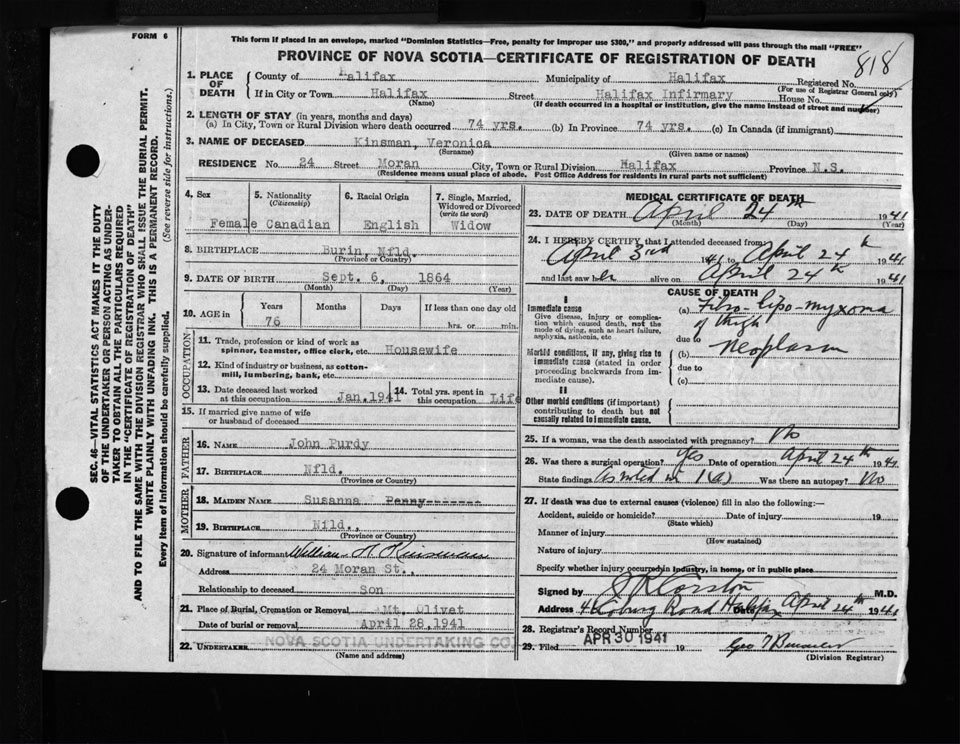 FORM 6
This form if placed in an envelope, marked "Dominion Statistics—Free, penalty for improper use $300," and properly addressed will pass through the mail "FREE"
PROVINCE OF NOVA SCOTIA—CERTIFICATE OF REGISTRATION OF DEATH
818
1. PLACE OF DEATH
County of Halifax Municipality of Halifax Registered No.
(For use of Registrar General only)
If in City or Town Halifax Street Halifax Infirmary House No.
(Name) (If death occurred in a hospital or institution, give the name instead of street and number)
2. LENGTH OF STAY (in years, months and days)
(a) In City, Town or Rural Division where death occurred 74 yrs. (b) In Province 74 yrs. (c) In Canada (if immigrant)
3. NAME OF DECEASED Kinsman, Veronica
(Surname) (Given name or names)
RESIDENCE No. 24 Street Moran City, Town or Rural Division Halifax Province N.S.
(Residence means usual place of abode. Post Office Address for residents in rural parts not sufficient)
4. Sex 5. Nationality (Citizenship) 6. Racial Origin 7. Single, Married, Widowed or Divorced (write the word)
Female Canadian English Widow
8. BIRTHPLACE Burin, Nfld.
(Province or Country)
9. DATE OF BIRTH Sept. 6, 1864
(Month) (Day) (Year)
10. AGE in Years Months Days If less than one day old
76 hrs. or min.
OCCUPATION
11. Trade, profession or kind of work as spinner, teamster, office clerk, etc. Housewife
12. Kind of industry or business, as cotton-mill, lumbering, bank, etc.
13. Date deceased last worked at this occupation Jan. 1941 14. Total yrs. spent in this occupation Life
15. If married give name of wife or husband of deceased
FATHER
16. NAME John Purdy
17. BIRTHPLACE Nfld.
(Province or Country)
MOTHER
18. MAIDEN NAME Susanna Penny-------
19. BIRTHPLACE Nild.,
(Province or Country)
20. Signature of informant William A Kinsman
Address 24 Moran St.,
Relationship to deceased Son
21. Place of Burial, Cremation or Removal Mt. Olivet
Date of burial or removal April 28, 1941
22. UNDERTAKER NOVA SCOTIA UNDERTAKING CO.
(Name and address)
MEDICAL CERTIFICATE OF DEATH
23. DATE OF DEATH April 24th 1941
(Month) (Day) (Year)
24. I HEREBY CERTIFY, that I attended deceased from
April 3rd 1941 to April 24th 1941
and last saw her alive on April 24th 1941
CAUSE OF DEATH
I
Immediate cause
Give disease, injury or complication which caused death, not the mode of dying, such as heart failure, asphyxia, asthenia, etc
(a) Fibro-lipo-myxoma of thigh
due to
Morbid conditions, if any, giving rise to immediate cause (stated in order proceeding backwards from immediate cause).
(b) neoplasm
due to
(c)
II
Other morbid conditions (if important) contributing to death but not causally related to immediate cause.
25. If a woman, was the death associated with pregnancy? No
26. Was there a surgical operation? Yes Date of operation April 24th 1941
State findings As noted in 1(a) Was there an autopsy? No
27. If death was due to external causes (violence) fill in also the following:—
Accident, suicide or homicide? Date of injury 19
(State which)
Manner of injury
(How sustained)
Nature of injury
Specify whether injury occurred in industry, in home, or in public place
Signed by Corston M.D.
Address Coburg Road Halifax Date April 24th 1941
28. Registrar's Record Number
29. Filed APR 30 1941 19 Geo
(Division Registrar)
SEC. 46—VITAL STATISTICS ACT MAKES IT THE DUTY
OF THE UNDERTAKER OR PERSON ACTING AS UNDER-
TAKER TO OBTAIN ALL THE PARTICULARS REQUIRED
IN THE "CERTIFICATE OF REGISTRATION OF DEATH"
AND TO FILE THE SAME WITH THE DIVISION REGISTRAR WHO SHALL ISSUE THE BURIAL PERMIT.
WRITE PLAINLY WITH UNFADING INK. THIS IS A PERMANENT RECORD.
Every item of information should be carefully supplied. (See reverse side for instructions.)